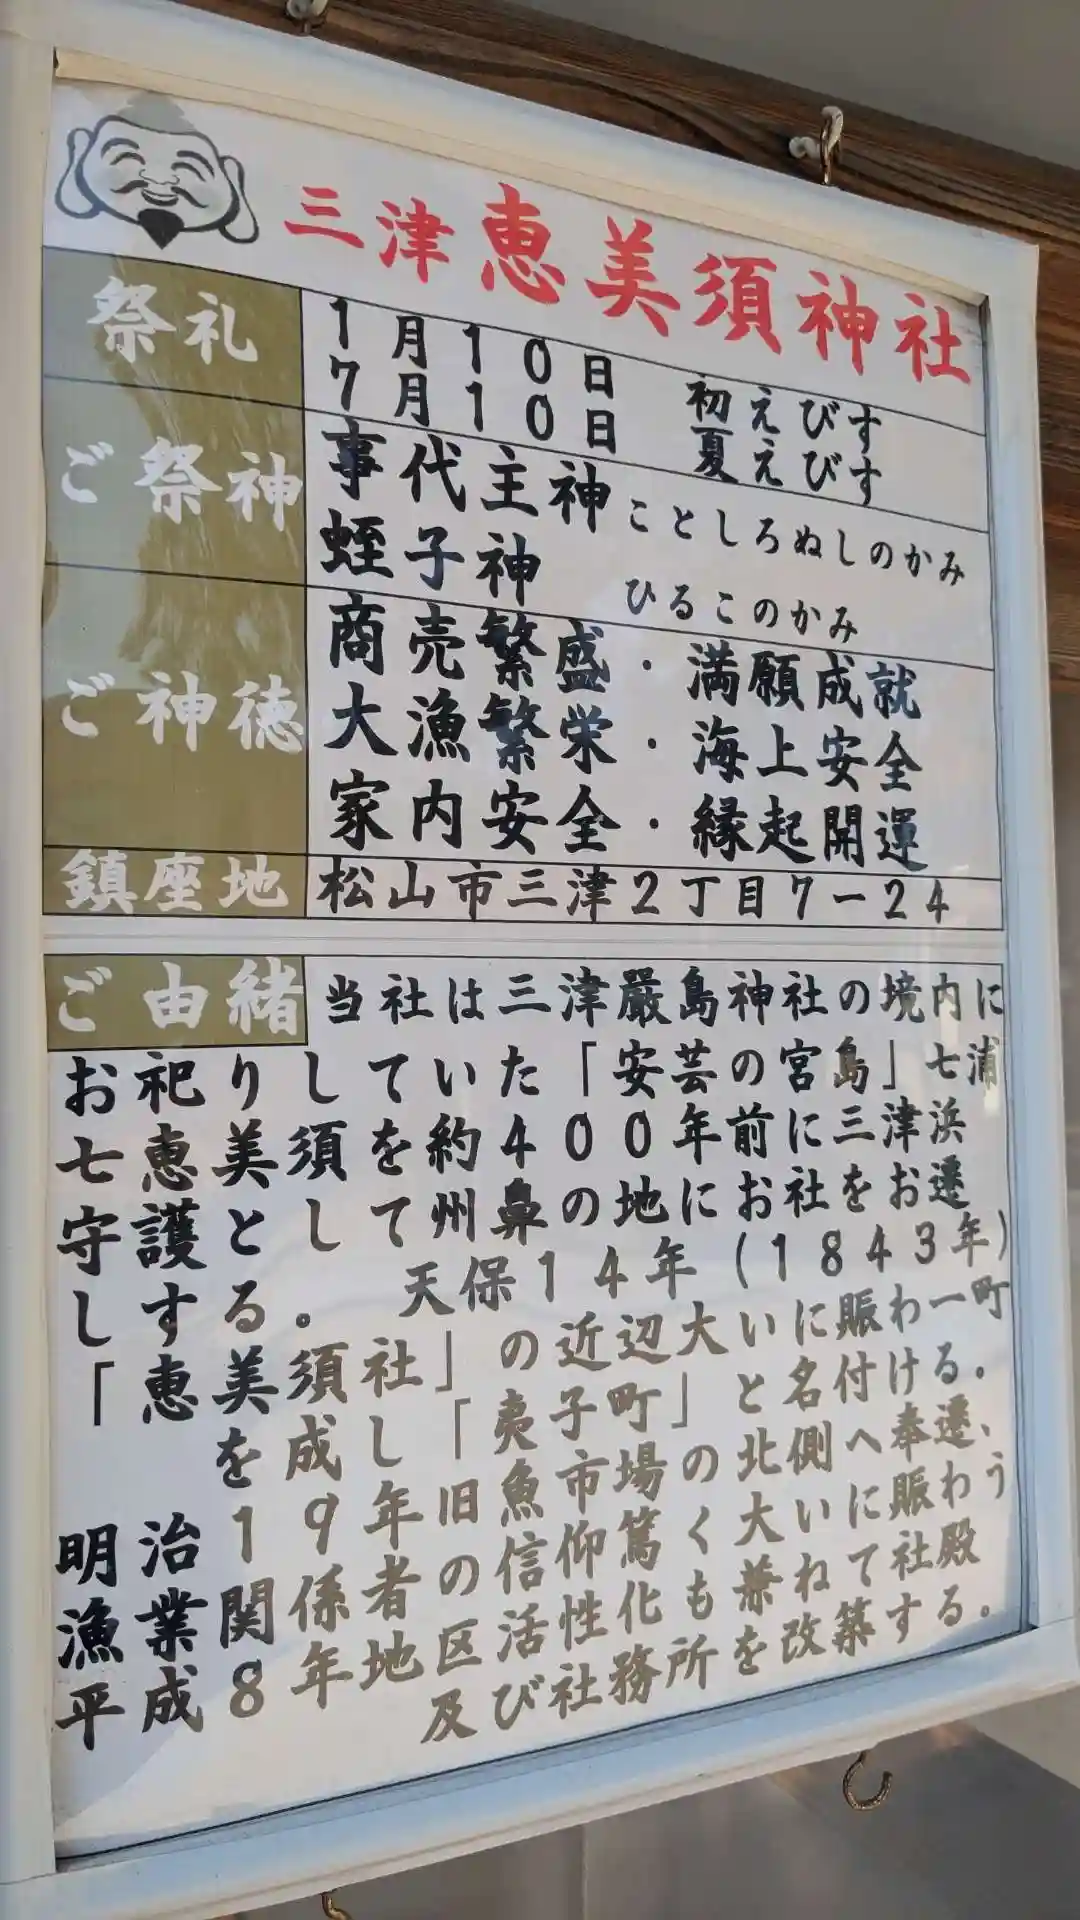 三津恵美須神社
祭礼
1月10日 初えびす
7月10日 夏えびす
ご祭神
事代主神 ことしろぬしのかみ
蛭子神 ひるこのかみ
ご神徳
商売繁盛・満願成就
大漁繁栄・海上安全
家内安全・縁起開運
鎮座地
松山市三津2丁目7-24
ご由緒
当社は三津厳島神社の境内に
お祀りしていた「安芸の宮島」七浦
七恵美須を約400年前に三津浜
守護として州鼻の地にお社をお遷
しする。 天保14年(1843年)
「恵美須社」の近辺大いに賑わ一町
を成し「夷子町」と名付ける。
明治19年旧魚市場の北側へ奉遷、
漁業関係者の信仰篤く大いに賑わう
平成8年地区活性化も兼ねて社殿
及び社務所を改築する。